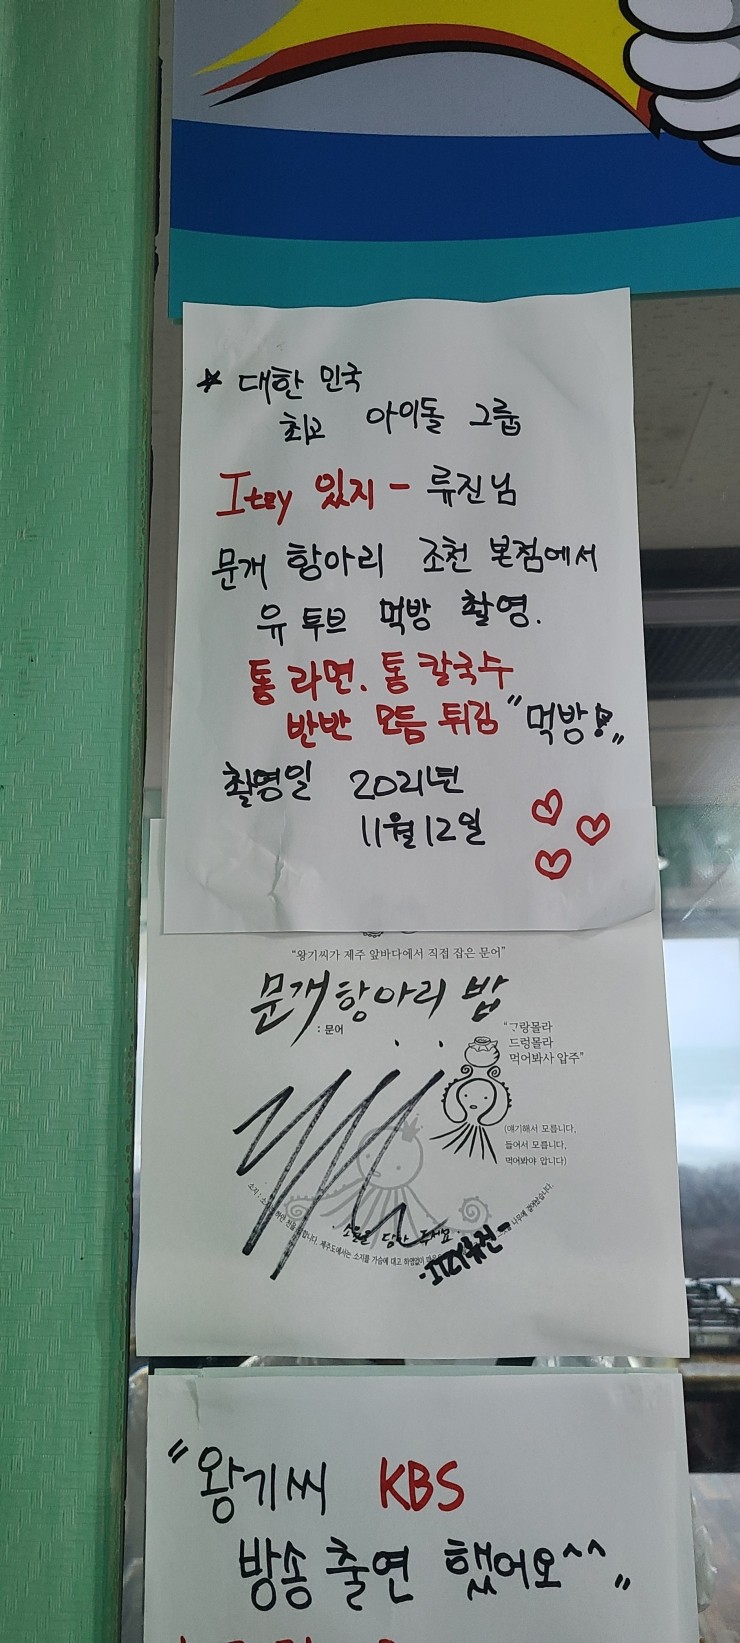 * 대한민국
최고 아이돌 그룹
Itzy 있지 - 류진님
문개 항아리 조천 본점에서
유투브 먹방 촬영.
통 라면. 통 칼국수
반반 모듬 튀김 "먹방!"
촬영일 2021년
11월 12일
"왕기씨가 제주 앞바다에서 직접 잡은 문어"
문개항아리 밥
: 문어
"그랑몰라
드렁몰라
먹어봐사 압주"
(얘기해서 모릅니다,
들어서 모릅니다,
먹어봐야 압니다)
소원을 담아 주세요
제주도에서는 소지를 가슴에 대고 하염없이
나무에 걸어놨습니다.
-ITZY 류진-
"왕기씨 KBS
방송 출연 했어요^^"